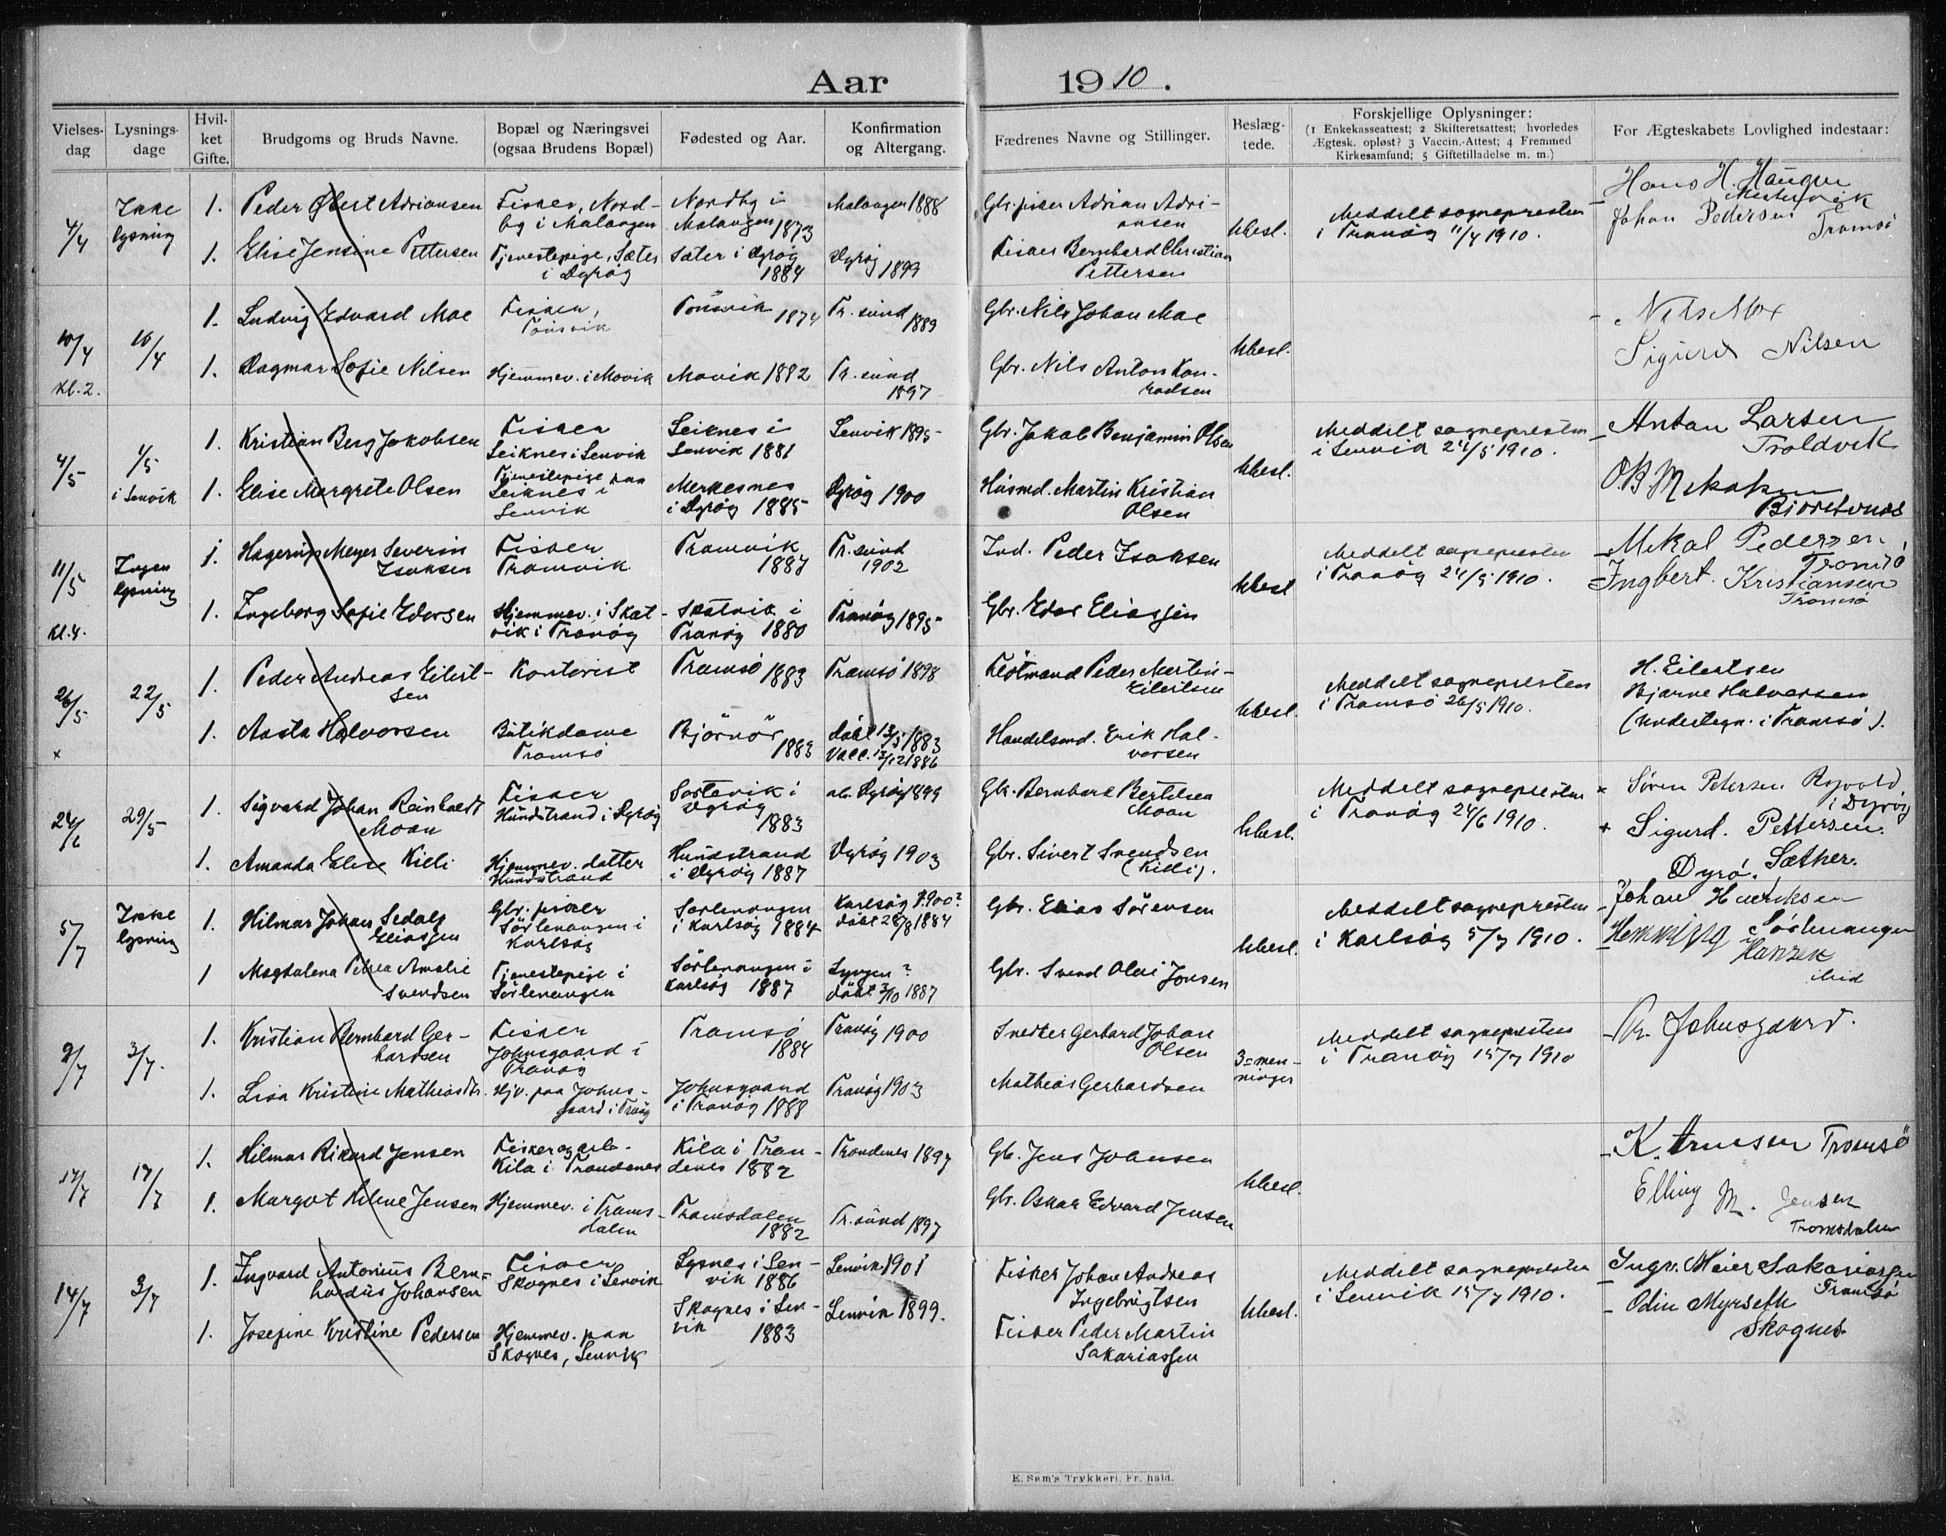 Aar 1910.
Vielsesdag | Lysningsdage | Hvilket Gifte. | Brudgoms og Bruds Navne. | Bopæl og Næringsvei (ogsaa Brudens Bopæl) | Fødested og Aar. | Konfirmation og Altergang. | Fædrenes Navne og Stillinger. | Beslægtede. | Forskjellige Oplysninger: (1 Enkekasseattest; 2 Skifteretsattest; hvorledes Ægtesk. opløst? 3 Vaccin.-Attest; 4 Fremmed Kirkesamfund; 5 Giftetilladelse m. m.) | For Ægteskabets Lovlighed indestaar:
4/4 | Ikke lysning | 1. | Peder Øbert Adriansen | Fisker, Nordby i Malangen | Nordby i Malangen 1873 | Malangen 1888 | Gbr. fisker Adrian Adriansen | Ubesl. | Meddelt sognepresten i Tranøy 11/4 1910. | Hans H. Haugen Mestervik
1. | Elise Jensine Pettersen | Tjenestepige, Sæter i Dyrøy | Sæter i Dyrøy 1884 | Dyrøy 1899 | Fisker Bernhard Christian Pettersen | Johan Pedersen Tromsø
10/4 Kl. 2. | 10/4 | 1. | Ludvig Edvard Moe | Fisker, Tønsvik | Tønsvik 1874 | Tr.sund 1889 | Gbr. Nils Johan Moe | Ubesl. | Nils Moe
1. | Dagmar Sofie Nilsen | Hjemmev. i Movik | Movik 1882 | Tr.sund 1897 | Gbr. Nils Anton Konradsen | Sigurd Nilsen
4/5 | 1/5 i Lenvik | 1. | Kristian Berg Jakobsen | Fisker Leiknes i Lenvik | Leiknes i Lenvik 1881 | Lenvik 1895 | Gbr. Jakob Benjamin Olsen | Ubesl. | Meddelt sognepresten i Lenvik 24/5 1910. | Anton Larsen Troldvik
1. | Elise Margrete Olsen | Tjenestepige paa Leiknes i Lenvik | Merkesnes i Dyrøy 1885 | Dyrøy 1900 | Husmd. Martin Kristian Olsen
11/5 Kl. 4. | Ingen lysning | 1. | Hagerup Meyer Severin Isaksen | Fisker Tromvik | Tromvik 1887 | Tr.sund 1902 | Ind. Peder Isaksen | Ubesl | Meddelt sognepresten i Tranøy 24/5 1910. | Mekal Pedersen Tromsø
1. | Ingeborg Sofie Edorsen | Hjemmev. i Skatvik i Tranøy | Skatvik i Tranøy 1880 | Tranøy 1895 | Gbr. Edor Eliassen | Ingbert Kristiansen Tromsø
26/5 x | 22/5 | 1. | Peder Andreas Eilertsen | Kontorist | Tromsø 1883 | Tromsø 1898 | Fløtmand Peder Martin Eilertsen | Ubesl. | Meddelt sognepresten i Tromsø 26/5 1910. | H. Eilertsen
1. | Aasta Halvorsen | Butikdame Tromsø | Bjørnør 1883 | døbt 13/5 1883 Vacc. 13/12 1886 | Handelsmd. Erik Halvorsen | Bjarne Halvorsen (undertegn. i Tromsø).
24/6 | 29/5 | 1. | Sigvard Johan Reinholdt Moan | Fisker Hundstrand i Dyrøy | Sørlevik i Dyrøy 1883 | Dyrøy 1899 | Gbr. Bernhard Bertilsen Moan | Ubesl. | Meddelt sognepresten i Tranøy 24/6 1910. | x Søren Petersen i Dyrøy
1. | Amanda Elise Kieli | Hjemmev. datter Hundstrand | Hundstrand i Dyrøy 1887 | Dyrøy 1903 | Gbr. Sivert Svendsen (Kieli). | x Sigurd. Pettersen. Dyrø. Sæther.
5/7 | Ikke lysning | 1. | Hilmar Johan Sedolf Eliassen | Gbr. fisker Sørlenangen i Karlsøy | Sørlenangen i Karlsøy 1884 | Karlsøy 1900? døbt 24/8 1884 | Gbr. Elias Sørensen | Ubesl. | Meddelt sognepresten i Karlsøy 5/7 1910. | Johan Henriksen Sørlenangen
1 | Magdalena Petrea Amalie Svendsen | Tjenestepige i Sørlenangen | Sørlenangen i Karlsøy 1887 | Lyngen? døbt 2/10 1887 | Gbr. Svend Olai Jonsen | Hemming Hansen ibid
9/7 | 3/7. | 1. | Kristian Bernhard Gerhardsen | Fisker Johnsgaard i Tranøy | Tromsø 1884 | Tranøy 1900 | Snedker Gerhard Johan Olsen | 3=menninger | Meddelt sognepresten i Tranøy 15/7 1910 | Johnsgaard.
1. | Lisa Kristine Mathiasdtr. | Hjv. paa Johnsgaard i Tranøy | Johnsgaard i Tranøy 1888 | Tranøy 1903 | Mathias Gerhardsen
17/7 | 17/7 | 1. | Hilmar Rikard Jensen | Fisker og arb. Kila i Trondenes | Kila i Trondenes 1882 | Trondenes 1897 | Gb. Jens Johnsen | Ubesl. | K. Arnesen Tromsø
1. | Margot Helene Jensen | Hjemmev. i Tromsdalen | Tromsdalen 1882 | Tr.sund 1897 | Gbr. Oskar Edvard Jensen | Elling M. Jensen Tromsdalen
14/7 | 3/7 | 1. | Ingvard Antonius Bernhardus Johansen | Fisker Skognes i Lenvik | Lysnes i Lenvik 1886 | Lenvik 1901 | Fisker Johan Andreas Ingebrigtsen | Ubesl. | Meddelt sognepresten i Lenvik 15/7 1910. | Ingv. Meier Sakariassen Tromsø
1. | Josefine Kristine Pedersen | Hjemmev. paa Skognes, Lenvik | Skognes i Lenvik 1883 | Lenvik 1899. | Fisker Peder Martin Sakariassen | Odin Myrseth Skognes.
E. Sem's Trykkeri, Fr. hald.